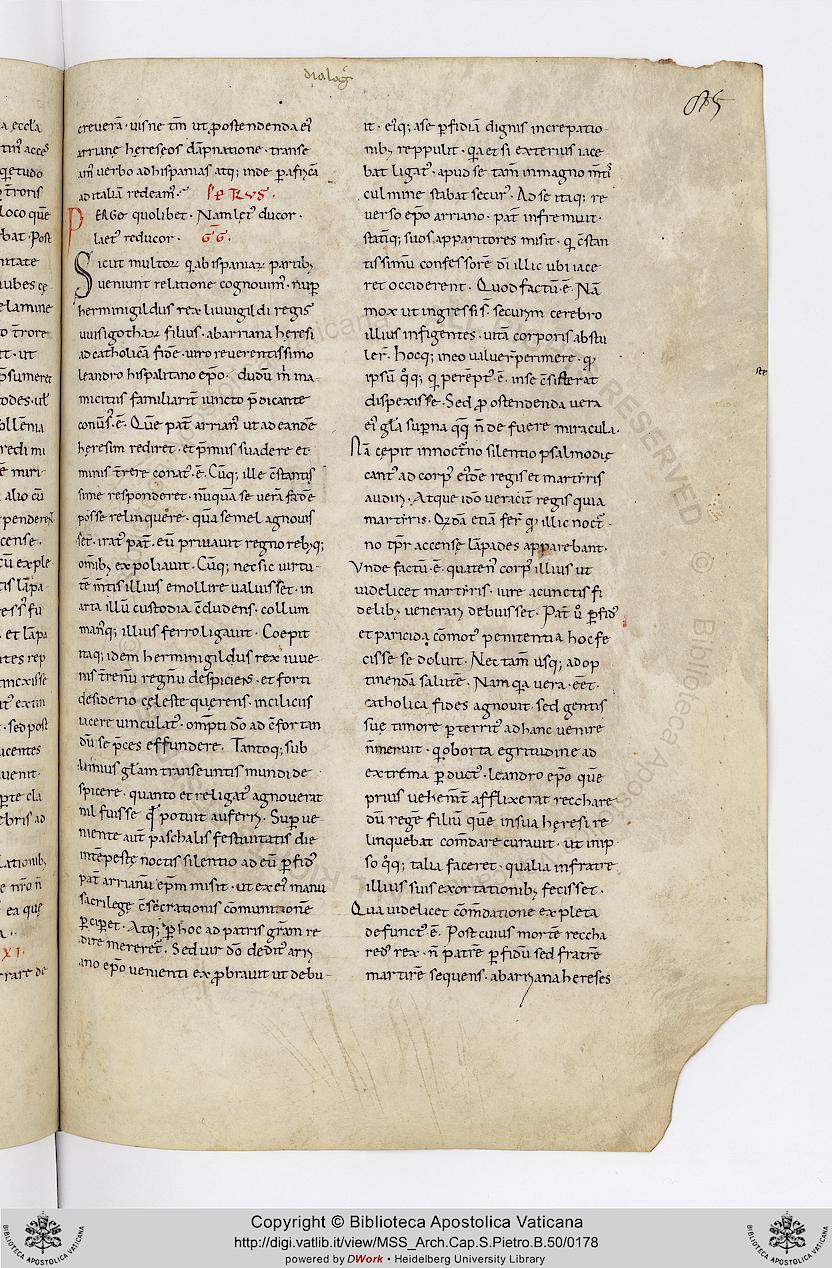 dialog̃
creverā. uisne tm̄ ut ꝓ ostendenda ei᷒
arriane hereseos dāpnatione. transe
am᷒ verbo ad hispanias atq; inde ꝑ africā
ad italiā redeam᷒. PETRVS.
PERGE quolibet. Nam let᷒ ducor.
laet᷒ reducor. GG.
Sicut multoꝝ q̄ ab ispaniaꝝ partib;
veniunt relatione cognovim᷒. nup̄
herminigildus rex liuuigildi regis
uuisigothaꝝ filius. ab arriana heresi
ad catholicā fidē. uiro reverentissimo
leandro hispalitano ep̄o. dudū m̄ in a-
micitiis familiarit̄ iuncto p̄dicante
conūs᷒.ē. Quē pat᷒ arrian᷒ ut ad eandē
heresim rediret. et p̄mus suadere et
minis t̄rere conat᷒.ē. Cūq; ille c̄stantis
sime responderet. nūquā se verā fidē
posse relinquere. quā semel agnouis
set. irat᷒ pat᷒. eū priuauit regno reb;q;
omīb; expoliauit. Cūq; nec sic uirtu-
tē m̄tis illius emollire ualuisset. in
arta illū custodia c̄cludens. collum
man᷒q; illius ferro ligauit. Coepit
itaq; idem herminigildus rex iuue-
nis t̄renū regnū despiciens. et forti
desiderio cęleste querens. in ciliciis
iacere uinculat᷒. omp̄ti dō ad c̄fortan
dū se p̄ces effundere. Tantoq; sub
limius gl̄am transeuntis mundi de
spicere. quanto et religat᷒ agnoverat
nil fuisse q̄d potuit auferri. Superue
niente aut̄ paschalis festiuitatis die
intēpestę noctis silentio ad eū ꝑfid᷒
pat᷒ arrianū ep̄m misit. ut ex ei᷒ manu
sacrilegę c̄secrationis cōmunionē
ꝑciꝑet. Atq; ꝑ hoc ad patris gr̄am re
dire mereret᷒. Sed vir dō dedit᷒ arri
ano ep̄o venienti exꝓbrauit ut debu-
it. ei᷒q; a se ꝑfidiā dignis increpatio-
nib; reppulit. q̄a et si exterius iace
bat ligat᷒. apud se tam̄ in magno m̄ti᷒
culmine stabat secur᷒. Ad se itaq; re
verso ep̄o arriano. pat᷒ infremuit.
statīq; suos apparitores misit. q̄ c̄stan
tissimū confessorē dī illic ubi iace
ret occiderent. Quod factū.ē. Nā
mox ut ingressi s̄. securym cerebro
illius infigentes. uitā corporis abstu
ler̄. Hocq; in eo ualuer̄ perimere. qd̄
ipsū q᷒q; q̄ perēpt᷒.ē. in se c̄stiterat
dispexisse. Sed ꝓ ostendenda vera
ei᷒ gl̄a sup̄na q̄q̄ n̄ defuere miracula.
Nā cępit in noct᷒no silentio psalmodię
cant᷒ ad corp᷒ ei᷒dē regis et martiris
audiri. Atque ideo veracit̄ regis quia
martiris. Q᷒dā etiā fer̄ qd̄ illic noct᷒-
no tp̄r accense lāpades apparebant.
Vnde factū.ē. quaten᷒ corp᷒ illius ut
uidelicet martiris. iure a cunctis fi
delib; venerari debuisset. Pat᷒ ū ꝑfid᷒
et paricida cōmot᷒ penitentia hoc fe
cisse se doluit. Nec tam̄ usq; ad op
tinendā salutē. Nam q̄a vera.eēt.
catholica fides agnouit. sed gentis
suę timore ꝑterrit᷒ ad hanc venire
n̄ meruit. q̄ oborta egritudine ad
extrema ꝑduct᷒. leandro ep̄o quē
prius vehem̄t᷒ afflixerat recchare
dū regē filiū quē in sua heresi re
linquebat com̄dare curauit. ut in ip-
so q᷒q; talia faceret. qualia in fratre
illius suis exortationib; fecisset.
Qua uidelicet com̄datione expleta
defunct᷒.ē. Post cuius mortē reccha
red᷒ rex. n̄ patrē ꝑfidū sed fratrē
martirē sequens. ab arriana hereses
Copyright © Biblioteca Apostolica Vaticana
http://digi.vatlib.it/view/MSS_Arch.Cap.S.Pietro.B.50/0178
powered by DWork • Heidelberg University Library